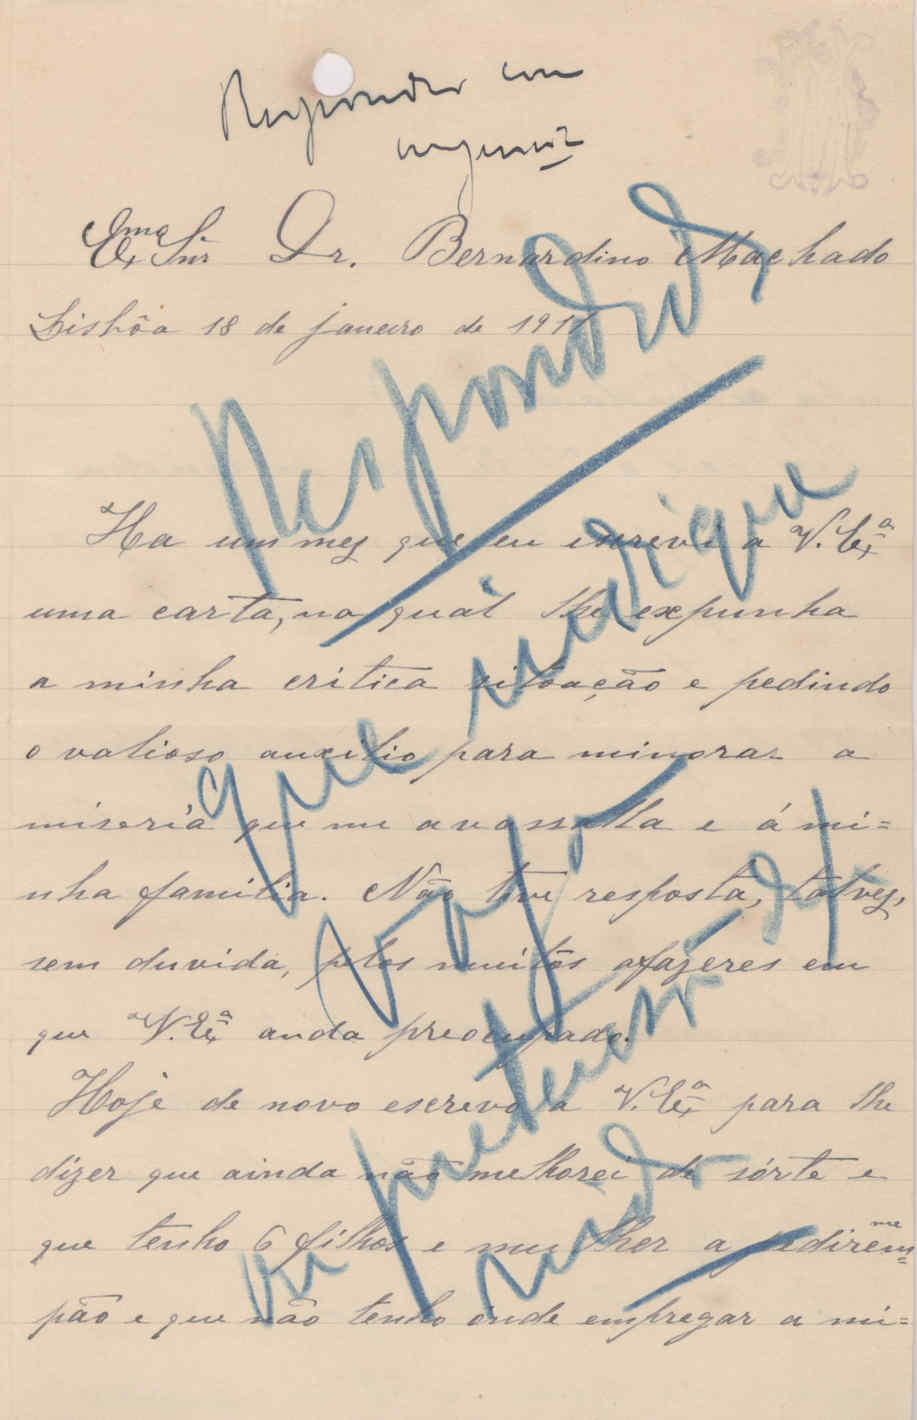 Responder com
urgencia
Exmo Snr Dr. Bernardino Machado
Lisbôa 18 de janeiro de 1911
Respondido
que indique
vaga
Ha um mez que eu escrevi a V. Exª
uma carta, na qual lhe expunha
a minha critica situação e pedindo
o valioso auxilio para minorar a
miseria que me avassalla e á mi=
nha familia. Não tive resposta, talvez,
sem duvida, pelos muitos afazeres em
que V. Exª anda preocupado.
Hoje de novo escrevo a V. Exª para lhe
dizer que ainda não melhorei de sórte e
que tenho 6 filhos e mulher a pedirem=me
pão e que não tenho onde empregar a mi=